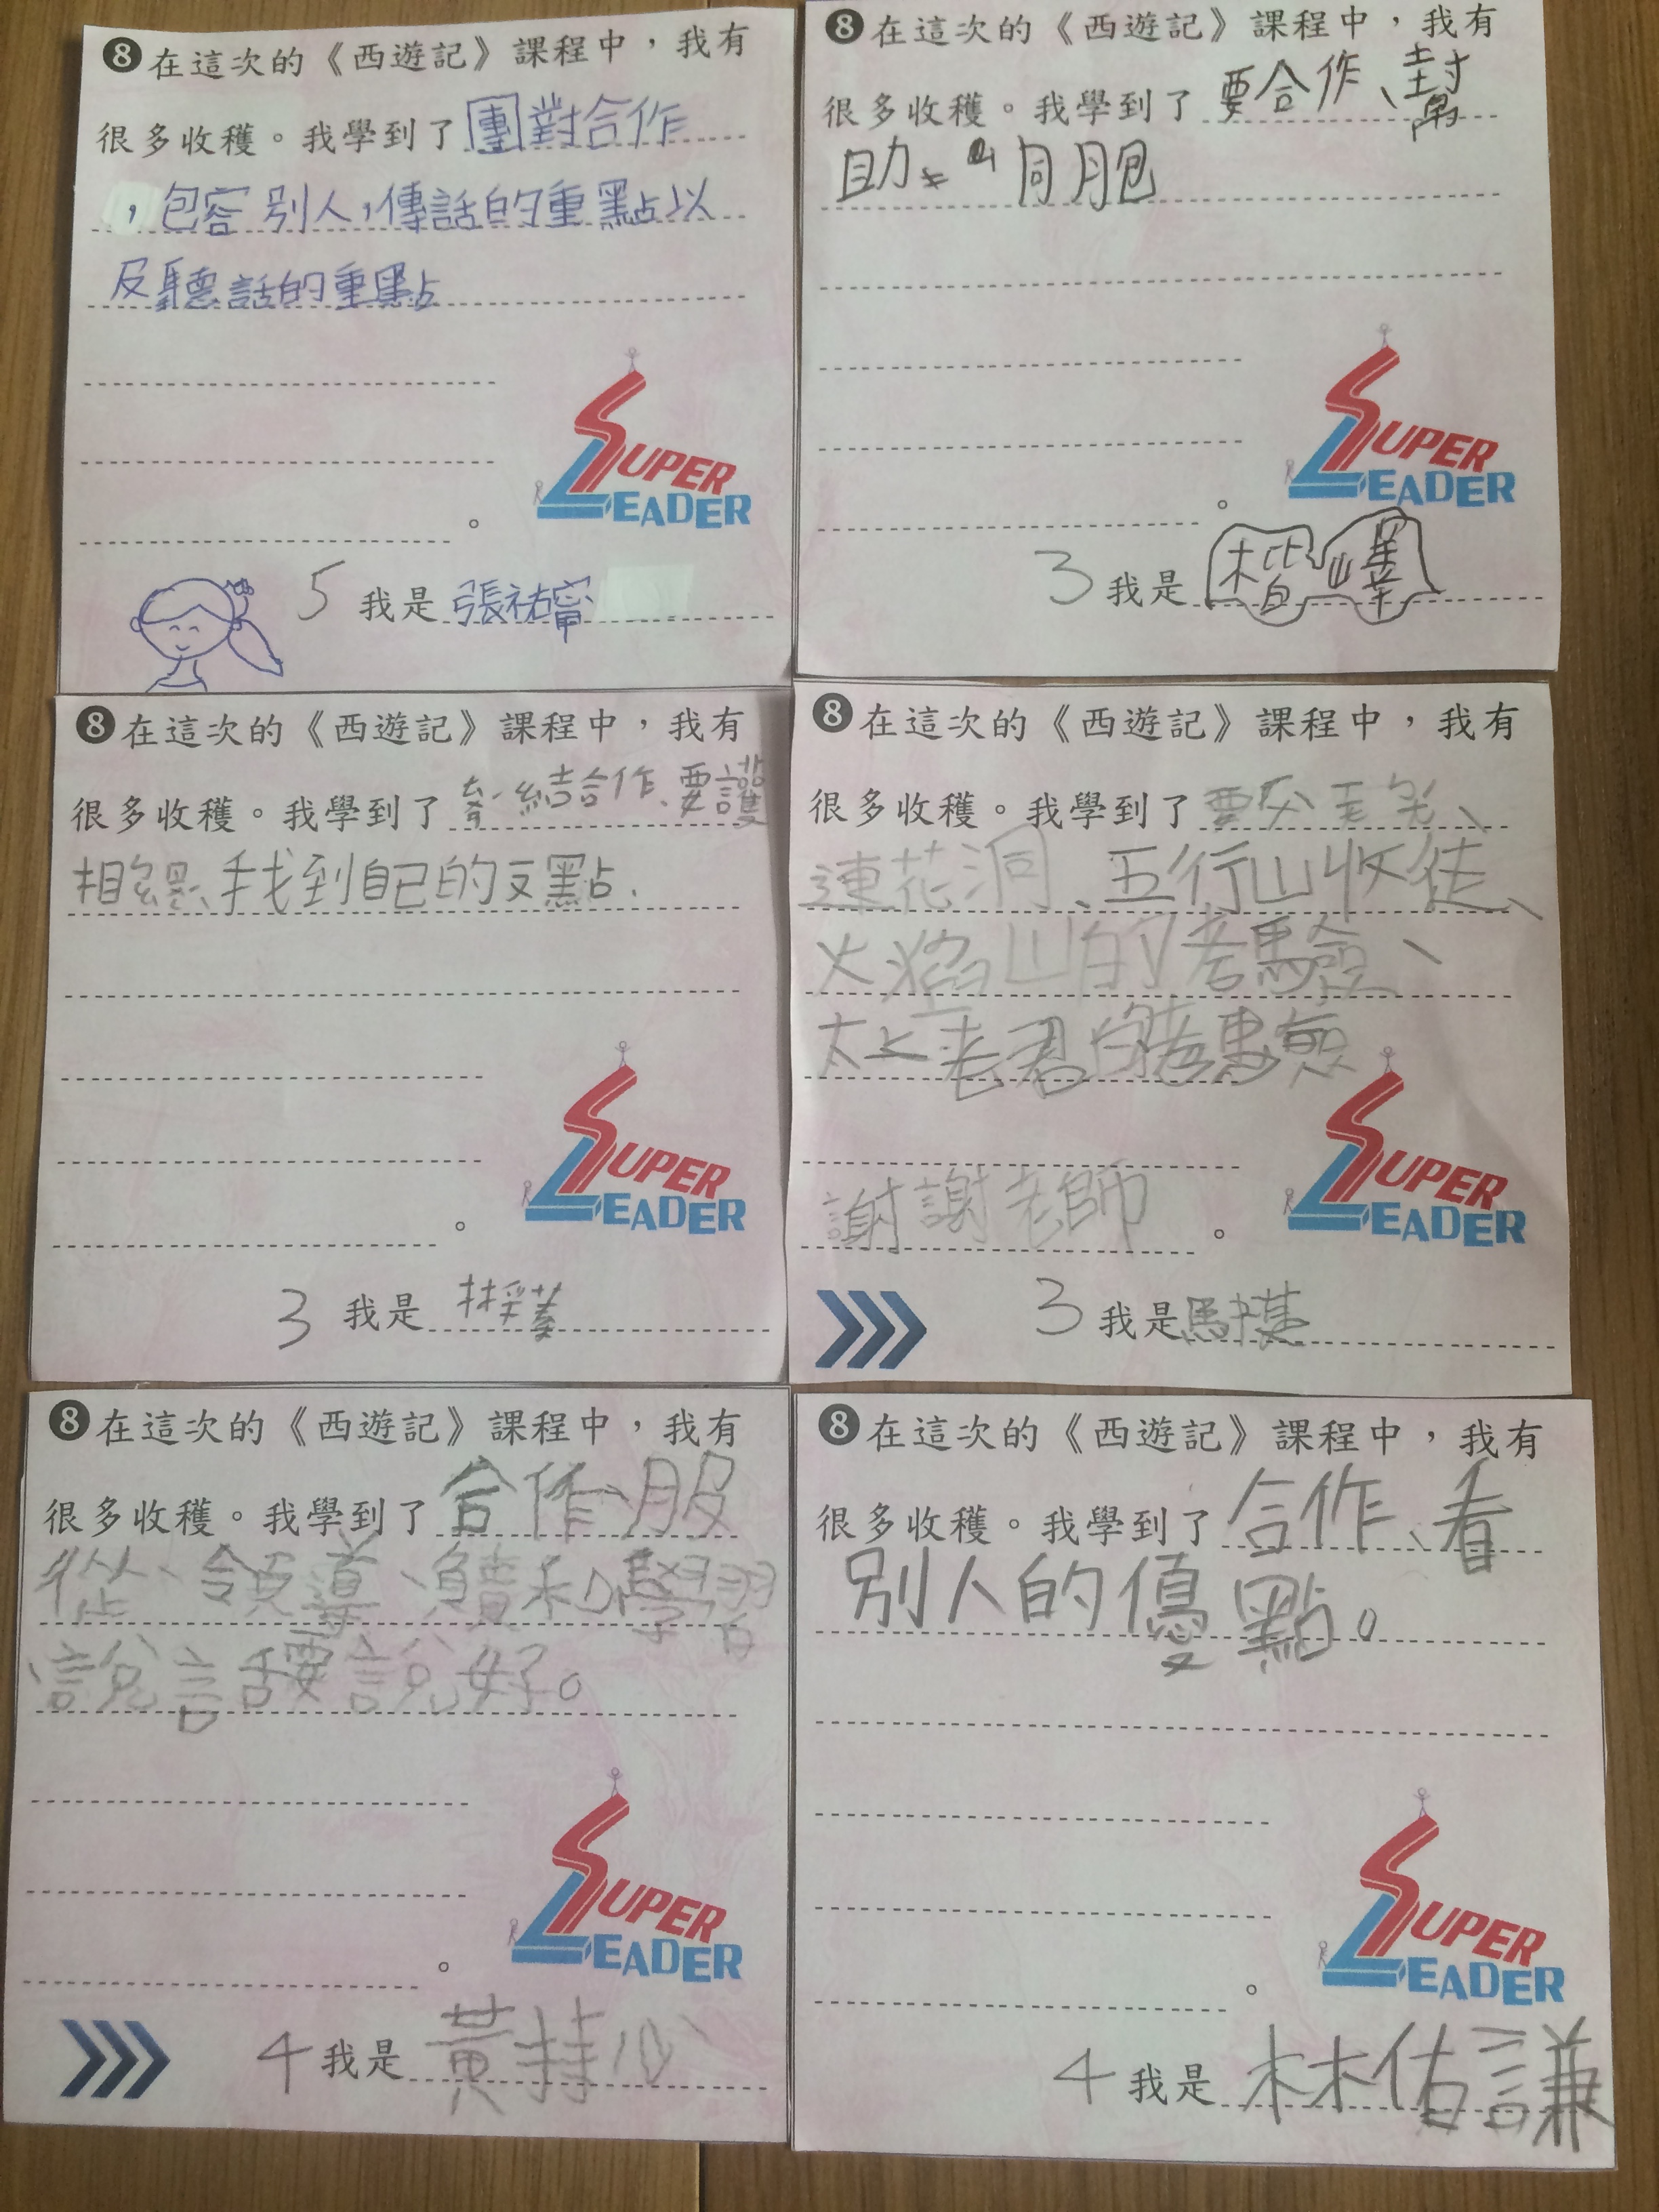 ❽在這次的《西遊記》課程中，我有
很多收穫。我學到了團對合作
，包容別人，傳話的重點以
及聽話的重點
SUPER
LEADER
。
5 我是張祐甯
❽在這次的《西遊記》課程中，我有
很多收穫。我學到了要合作、幫
助 同胞
SUPER
LEADER
。
3 我是楷嶧
❽在這次的《西遊記》課程中，我有
很多收穫。我學到了 結合作、要護
相 、找到自己的 點、
SUPER
LEADER
。
3 我是 林
❽在這次的《西遊記》課程中，我有
很多收穫。我學到了要 、
蓮花洞、五行山收徒、
火焰山的考驗、
太上老君的考驗
謝謝老師。
SUPER
LEADER
3 我是馬
❽在這次的《西遊記》課程中，我有
很多收穫。我學到了合作、服
從、領導、 和學習
說話要說好。
SUPER
LEADER
。
4 我是黃持
❽在這次的《西遊記》課程中，我有
很多收穫。我學到了合作、看
別人的優點。
SUPER
LEADER
。
4 我是林佑謙